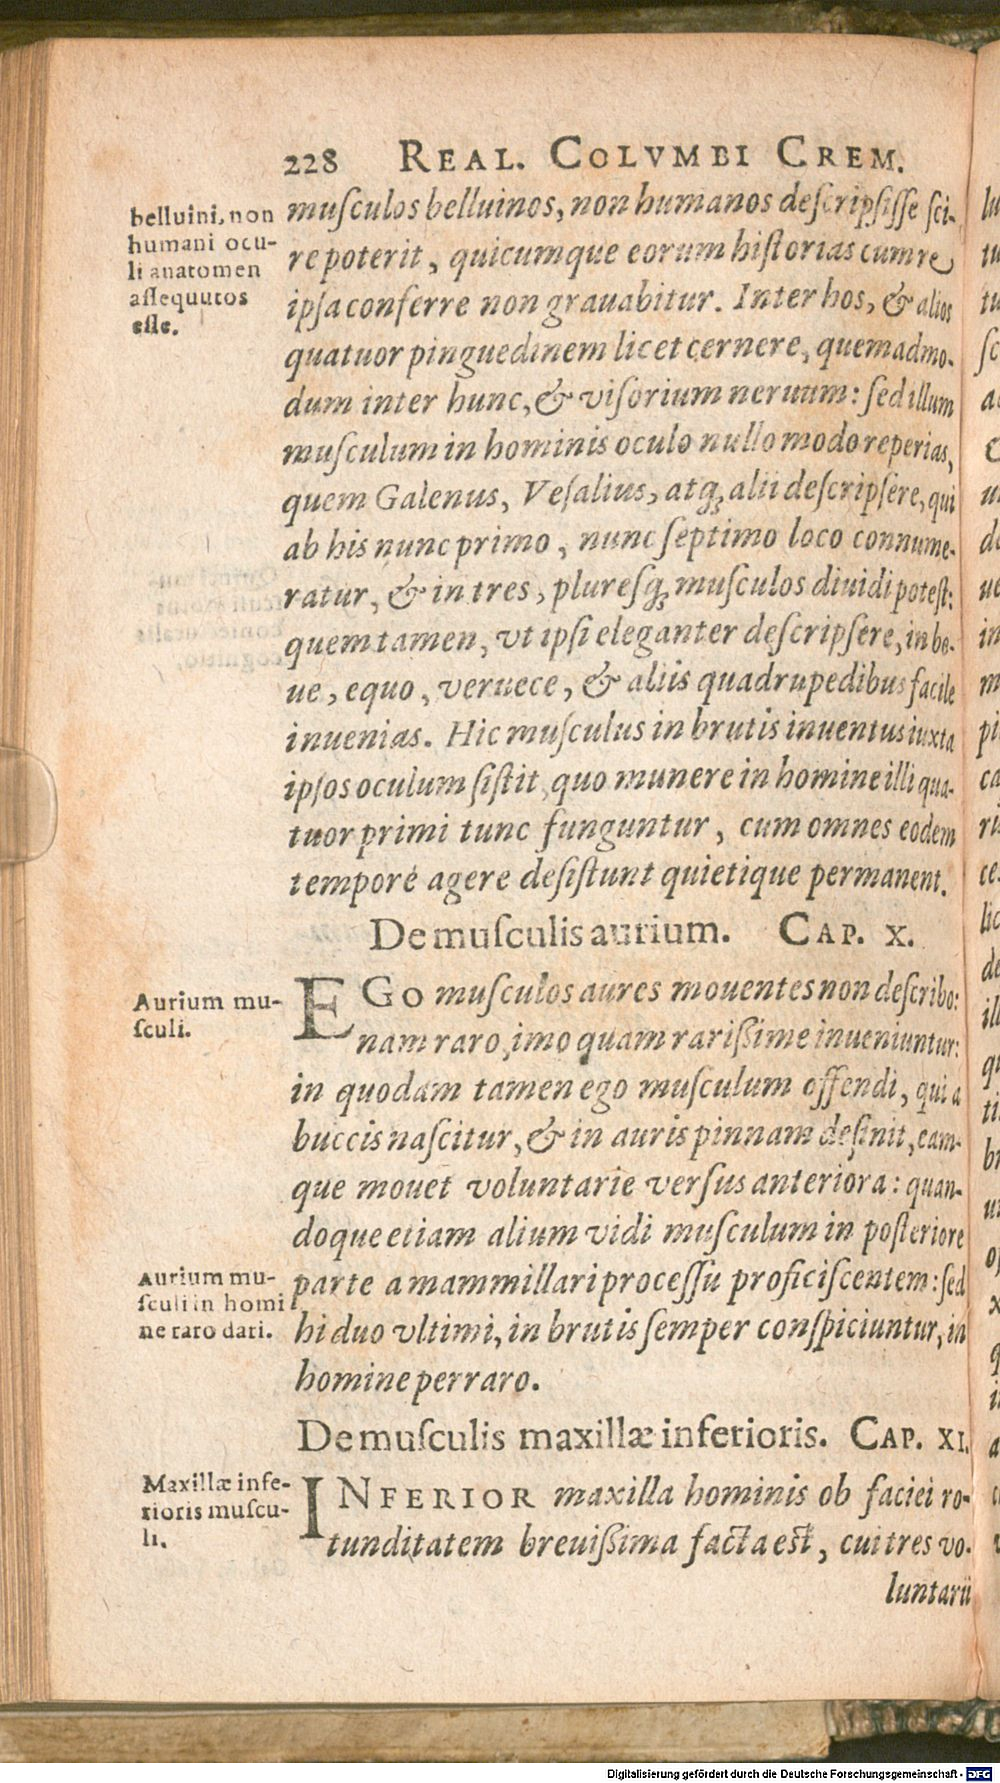 228 REAL. COLVMBI CREM.
belluini, non
humani ocu-
li anatomen
assequutos
esse.
muſculos belluinos, non humanos deſcripſiſſe ſci-
re poterit, quicumque eorum hiſtorias cum re
ipſa conferre non grauabitur. Inter hos, & alios
quatuor pinguedinem licet cernere, quemadmo-
dum inter hunc, & viſorium neruum: ſed illum
muſculum in hominis oculo nullo modo reperias,
quem Galenus, Veſalius, atq; alii deſcripſere, qui
ab his nunc primo, nunc ſeptimo loco connume-
ratur, & in tres, pluresq; muſculos diuidi poteſt:
quem tamen, vt ipſi eleganter deſcripſere, in bo-
ue, equo, veruece, & aliis quadrupedibus facile
inuenias. Hic muſculus in brutis inuentus iuxta
ipſos oculum ſiſtit, quo munere in homine illi qua-
tuor primi tunc funguntur, cum omnes eodem
temporé agere deſiſtunt quietique permanent.
De muſculis aurium. CAP. X.
Aurium mu-
ſculi.
EGO muſculos aures mouentes non deſcribo:
nam raro, imo quam rariſſime inueniuntur:
in quodam tamen ego muſculum offendi, qui a
buccis naſcitur, & in auris pinnam deſinit, eam-
que mouet voluntarie verſus anteriora: quan-
doque etiam alium vidi muſculum in poſteriore
Aurium mu-
ſculi in homi
ne raro dari.
parte a mammillari proceſſu proficiſcentem: ſed
hi duo vltimi, in brutis ſemper conſpiciuntur, in
homine perraro.
De muſculis maxillæ inferioris. CAP. XI.
Maxillæ infe-
rioris muſcu-
li.
INFERIOR maxilla hominis ob faciei ro-
tunditatem breuiſſima facta eſt, cui tres vo-
luntarii
Digitalisierung gefördert durch die Deutsche Forschungsgemeinschaft - DFG